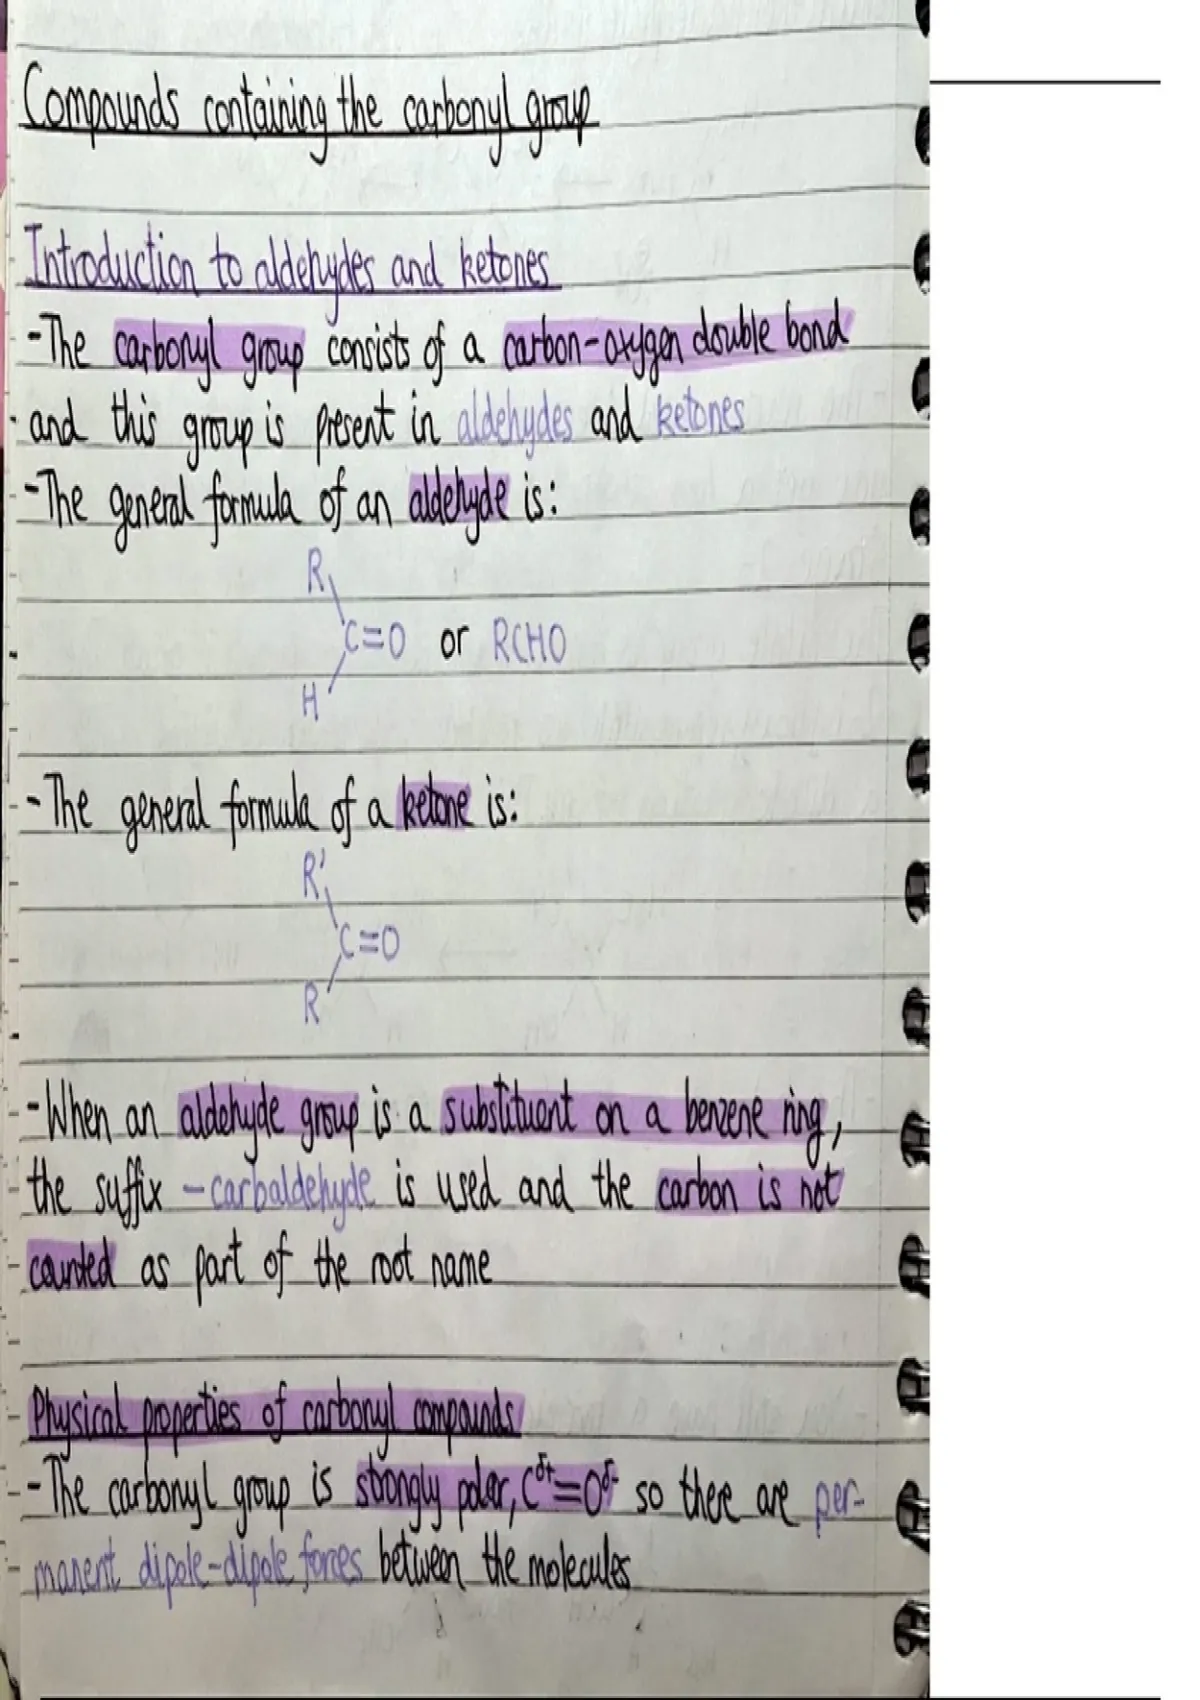 Compounds containing the carbonyl group
Introduction to aldehydes and ketones
-The carbonyl group consists of a carbon-oxygen double bond
and this group is present in aldehydes and ketones
-The general formula of an aldehyde is:
R
C=O or RCHO
H
-The general formula of a ketone is:
R'
C=O
R
-When an aldehyde group is a substituent on a benzene ring,
the suffix -carbaldehyde is used and the carbon is not
counted as part of the root name
Physical properties of carbonyl compounds
-The carbonyl group is strongly polar, Cδ+=Oδ- so there are per-
manent dipole-dipole forces between the molecules